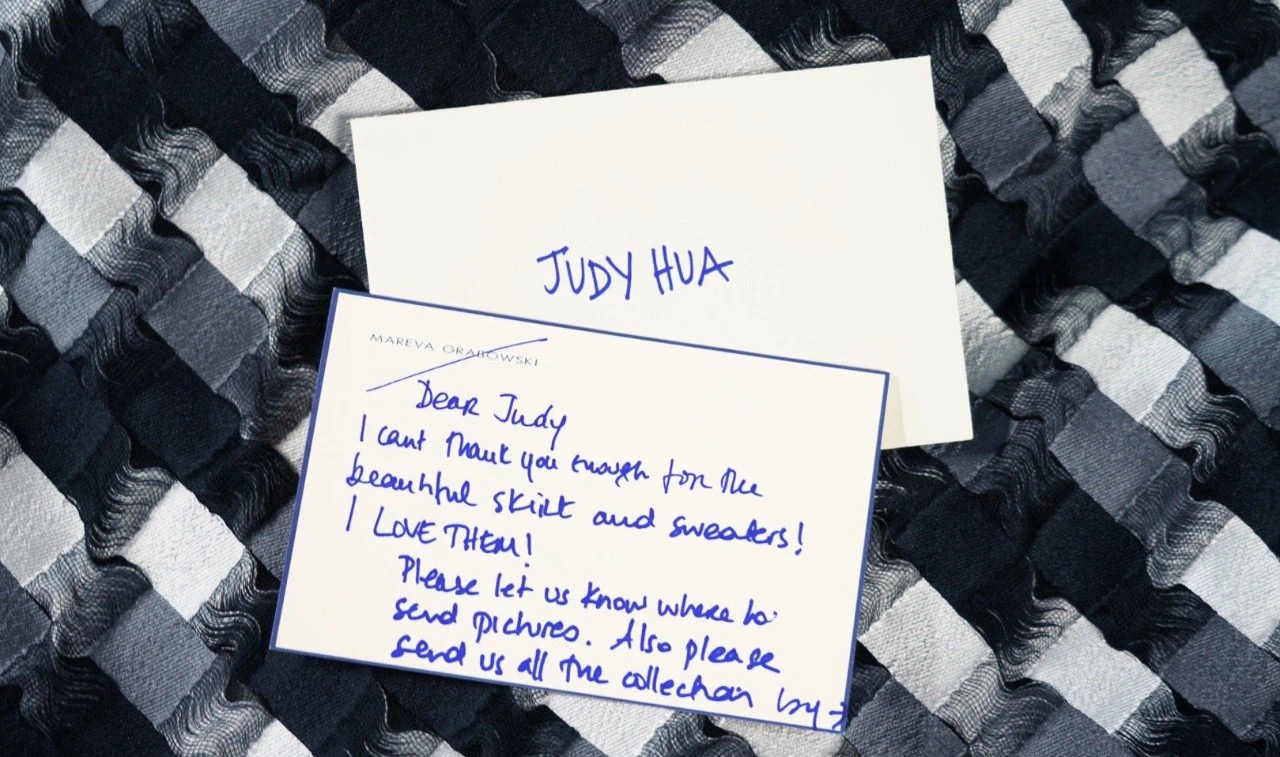 JUDY HUA
MAREVA GRABOWSKI
Dear Judy
I cant thank you enough for the
beautiful skirt and sweaters!
I LOVE THEM!
Please let us know where to
send pictures. Also please
send us all the collection by →